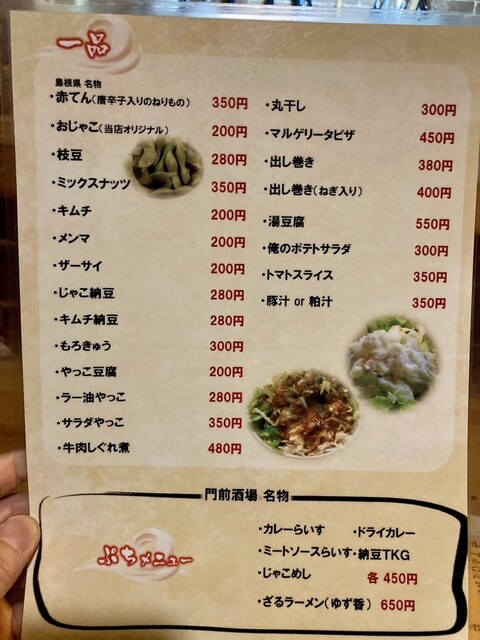 一品
島根県 名物
・赤てん(唐辛子入りのねりもの) 350円
・おじゃこ(当店オリジナル) 200円
・枝豆 280円
・ミックスナッツ 350円
・キムチ 200円
・メンマ 200円
・ザーサイ 200円
・じゃこ納豆 280円
・キムチ納豆 280円
・もろきゅう 300円
・やっこ豆腐 200円
・ラー油やっこ 280円
・サラダやっこ 350円
・牛肉しぐれ煮 480円
・丸干し 300円
・マルゲリータピザ 450円
・出し巻き 380円
・出し巻き(ねぎ入り) 400円
・湯豆腐 550円
・俺のポテトサラダ 300円
・トマトスライス 350円
・豚汁 or 粕汁 350円
門前酒場 名物
ぷちメニュー
・カレーらいす ・ドライカレー
・ミートソースらいす・納豆TKG
・じゃこめし 各 450円
・ざるラーメン(ゆず香) 650円